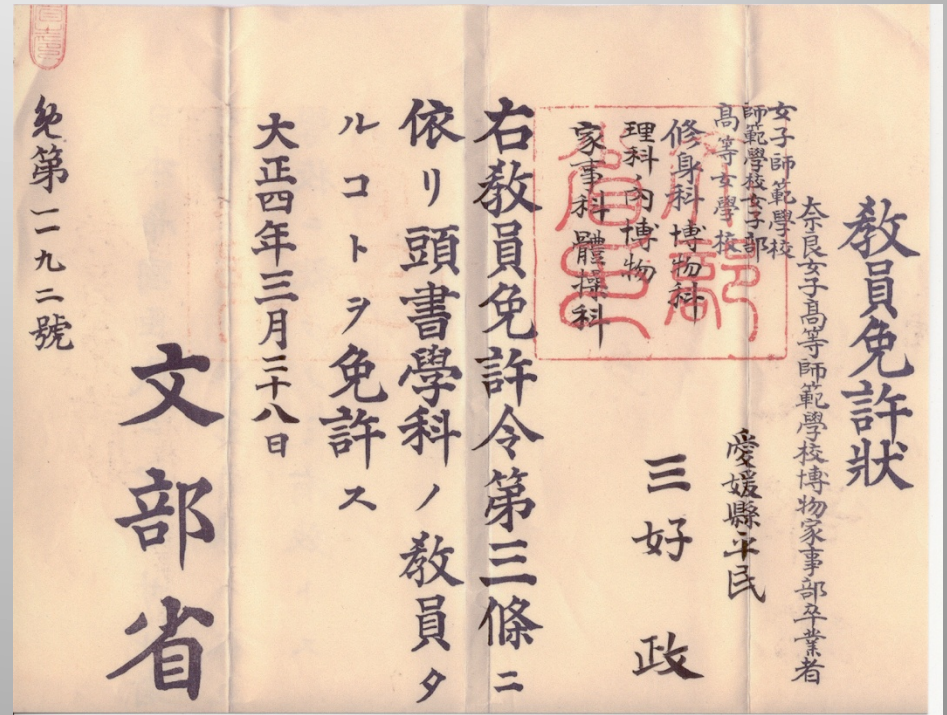 教員免許狀
奈良女子高等師範學校博物家事部卒業者
愛媛縣平民
三好 政
女子師範學校
師範學校女子部
高等女學校
修身科 博物科
理科內博物
家事科 體操科
右教員免許令第三條ニ
依リ頭書學科ノ教員タ
ルコトヲ免許ス
大正四年三月二十八日
文部省
免第一一九二號